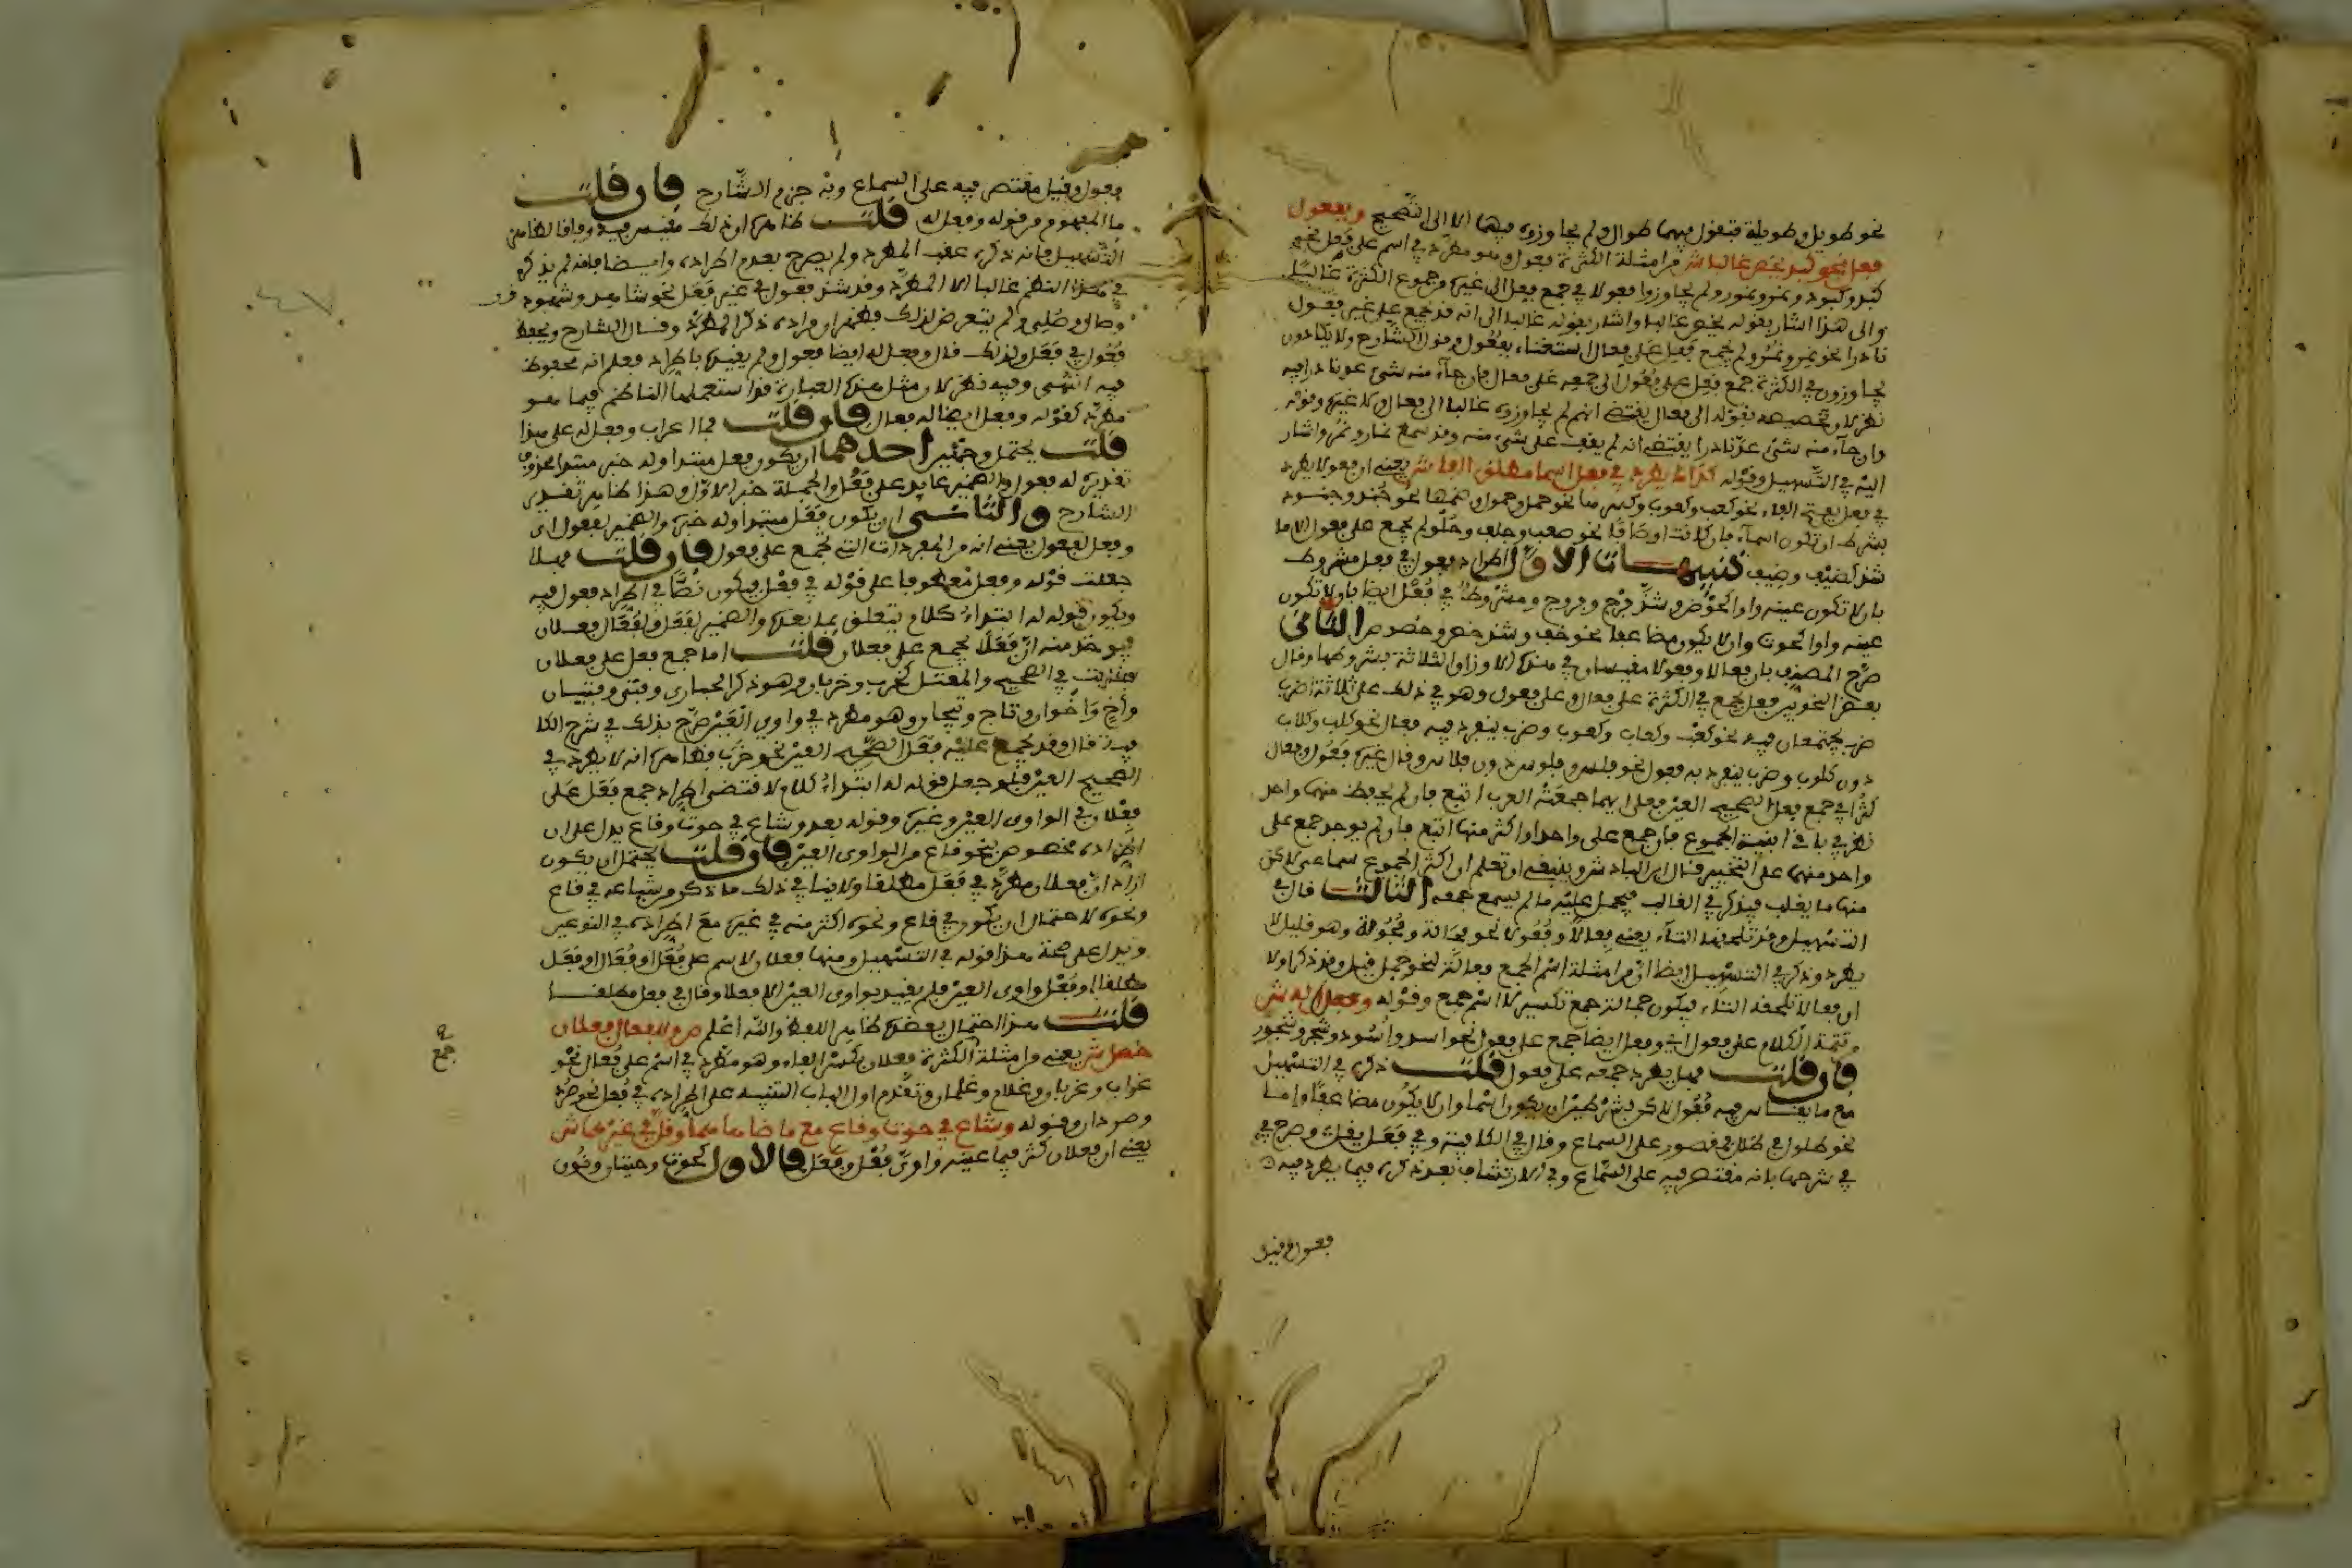 نحو طويل وطويلة فتقول فيهما طوال ولم يجاوزوه فيهما الا الى التصحيح وبفعول
فعل نحو كبد يخص غالبا ش من امثلة الكثرة فعول وهو مطرد في اسم على فعل نحو
كبد وكبود ونمر ونمور ولم يجاوزوا فعولا في جمع فعل الى غيره من جموع الكثرة غالبا
والى هذا اشار بقوله يخص غالبا واشار بقوله غالبا الى انه قد يجمع على غير فعول
نادرا نحو نمر ونمر ولم يجمع فعل على فعال استغناء بفعول وقول الشارح ولا يكادون
يجاوزون في الكثرة جمع فعل على فعول الى جمعه على فعال فان جاء منه شيء عد نادرا فيه
نظر لان تخصيصه بقوله الى فعال يقتضي انهم لم يجاوزوه غالبا الى فعال ولا غيره وقوله
وان جاء منه شيء عد نادرا يقتضي انه لم يقف على شيء منه وقد سمع نمار ونمر واشار
اليه في التسهيل وقوله كذاك يطرد في فعل اسما مطلق الفا ش يعني ان فعولا يطرد
في فعل بفتح الفاء نحو كعب وكعوب وكسرها نحو حمل وحمول وضمها نحو جند وجنود
بشرط ان تكون اسماء فان كانت اوصافا نحو صعب وجلف وحلو لم يجمع على فعول الا ما
شذ كضيف وضيوف تنبيهات الاول اطراد فعول في فعل مشروط
بان لا تكون عينه واوا كحوض وشذ فوج وفووج ومشروط في فعل ايضا بان لا تكون
عينه واوا كحوت وان لا يكون مضاعفا نحو خف وشذ خص وخصوص الثاني
صرح المصنف بان فعالا وفعولا مقيسان في هذه الاوزان الثلاثة بشروطها وقال
بعض النحويين فعل يجمع في الكثرة على فعال وعلى فعول وهو في ذلك على ثلاثة اضرب
ضرب يجتمعان فيه نحو كعب وكعاب وكعوب وضرب ينفرد فيه فعال نحو كلب وكلاب
دون كلوب وضرب ينفرد به فعول نحو فلس وفلوس دون فلاس وقال غيره فعول وفعال
كثرا في جمع فعل الصحيح العين فعلى ايهما جمعته العرب اتبع فان لم يحفظ منهما واحد
نظر في باقي ابنية الجموع فان جمع على واحد او اكثر منها اتبع فان لم يوجد جمع على
واحد منها على التخيير قال ابن الباذش وينبغي ان تعلم ان اكثر الجموع سماعي لاكن
منها ما يغلب فيذكر في الغالب فيحمل عليه ما لم يسمع جمعه الثالث قال في
التسهيل وقد تلحقهما التاء يعني فعالا وفعولا نحو فحالة وفحولة وهو قليل لا
يطرد وذكر في التسهيل ايضا ان من امثلة اسم الجمع فعالة لنحو جمل قبل وقد ذكر اولا
ان فعالا تلحقه التاء فيكون جمالة جمع تكسير لا اسم جمع وقوله وفعل له ش
وتتمة الكلام على فعول اي وفعل ايضا جمع على فعول نحو اسد واسود وشجر وشجور
فان قلت فهل يطرد جمعه على فعول قلت ذكره في التسهيل
مع ما يقاس فيه فعول لاكن بشرطين ان يكون اسما وان لا يكون مضاعفا واما
نحو طلول في طلل فمقصور على السماع وقال في الكافية وفي فعل يقل وصرح في
في شرحها بانه مقتصر فيه على السماع وفي الارتشاف بعد ذكره فيما يطرد فيه
فعول وقيل
فعول وقيل مقتصر فيه على السماع وبه جزم الشارح فان قلت
ما المفهوم من قوله وفعل له قلت ظاهره ان ذلك مقيس فيه وفاقا لظاهر
التسهيل فانه ذكره عقب المطرد ولم يصرح بعدم اطراده وايضا فانه لم يذكر
في هذا النظم غالبا الا المطرد وقد شذ فعول في غير فعل نحو شاهد وشهود
وصال وصلي ولم يتعرض لذلك فظهر ان مراده ذكر المطرد وقال الشارح ويحفظ
فعول في فعل ولذلك قال وفعل له ايضا فعول ولم يقيده باطراد فعلم انه محفوظ
فيه انتهى وفيه نظر لان مثل هذه العبارة قد استعملها الناظم فيما هو
مطرد كقوله وفعل ايضا له فعال فان قلت فما اعراب وفعل له على هذا
قلت يحتمل وجهين احدهما ان يكون فعل مبتدا وله خبر مبتدا محذوف
تقديره له فعول والضمير عايد على فعل والجملة خبر الاول وهذا ظاهر تقدير
الشارح والثاني ان يكون فعل مبتدا وله خبره والضمير لفعول اي
وفعل لفعول يعني انه من المفردات التي تجمع على فعول فان قلت فهلا
جعلت قوله وفعل معطوفا على قوله في فعل فيكون نصا في اطراد فعول فيه
ويكون قوله له ابتداء كلام يتعلق بما بعده والضمير لفعل وللفعال فعلان
فيوخذ منه ان فعلا يجمع على فعلان قلت اما جمع فعل على فعلان
فثابت في الصحيح والمعتل كخرب وخربان وهو ذكر الحباري وفتى وفتيان
واخ واخوان وتاج وتيجان وهو مطرد في واوي العين صرح بذلك في شرح الكا
فية قال وقد يجمع عليه فعل الصحيح العين نحو خرب فظاهره انه لا يطرد في
الصحيح العين فلو جعل قوله له ابتداء كلام لاقتضى اطراد جمع فعل على
فعلان في الواوي العين وغيره وقوله بعد وشاع في حوت وقاع يدل على ان
اطراده مخصوص بنحو قاع من الواوي العين فان قلت يحتمل ان يكون
اراد ان فعلان مطرد في فعل مطلقا ولا ينافي ذلك ما ذكر من شياعه في قاع
ونحوه لاحتمال ان يكون في قاع ونحوه اكثر منه في غيره مع اطراده في النوعين
ويدل على صحة هذا قوله في التسهيل ومنها فعلان لاسم على فعل او فعال او فعل
مطلقا او فعل واوي العين فلم يقيد بواوي العين الا فعلا وقال في فعل مطلقا
قلت هذا احتمال يعضده ظاهر اللفظ والله اعلم ص وللفعال فعلان
حصل ش يعني من امثلة الكثرة فعلان بكسر الفاء وهو مطرد في اسم على فعال نحو
غراب وغربان وغلام وغلمان وتقدم اول الباب التنبيه على اطراده في فعل نحو صرد
وصردان وقوله وشاع في حوت وقاع مع ما ضاهاهما وقل في غيرهما ش
يعني ان فعلان كثر فيما عينه واو من فعل وفعل فالاول كحوت وحيتان ونون
جمع